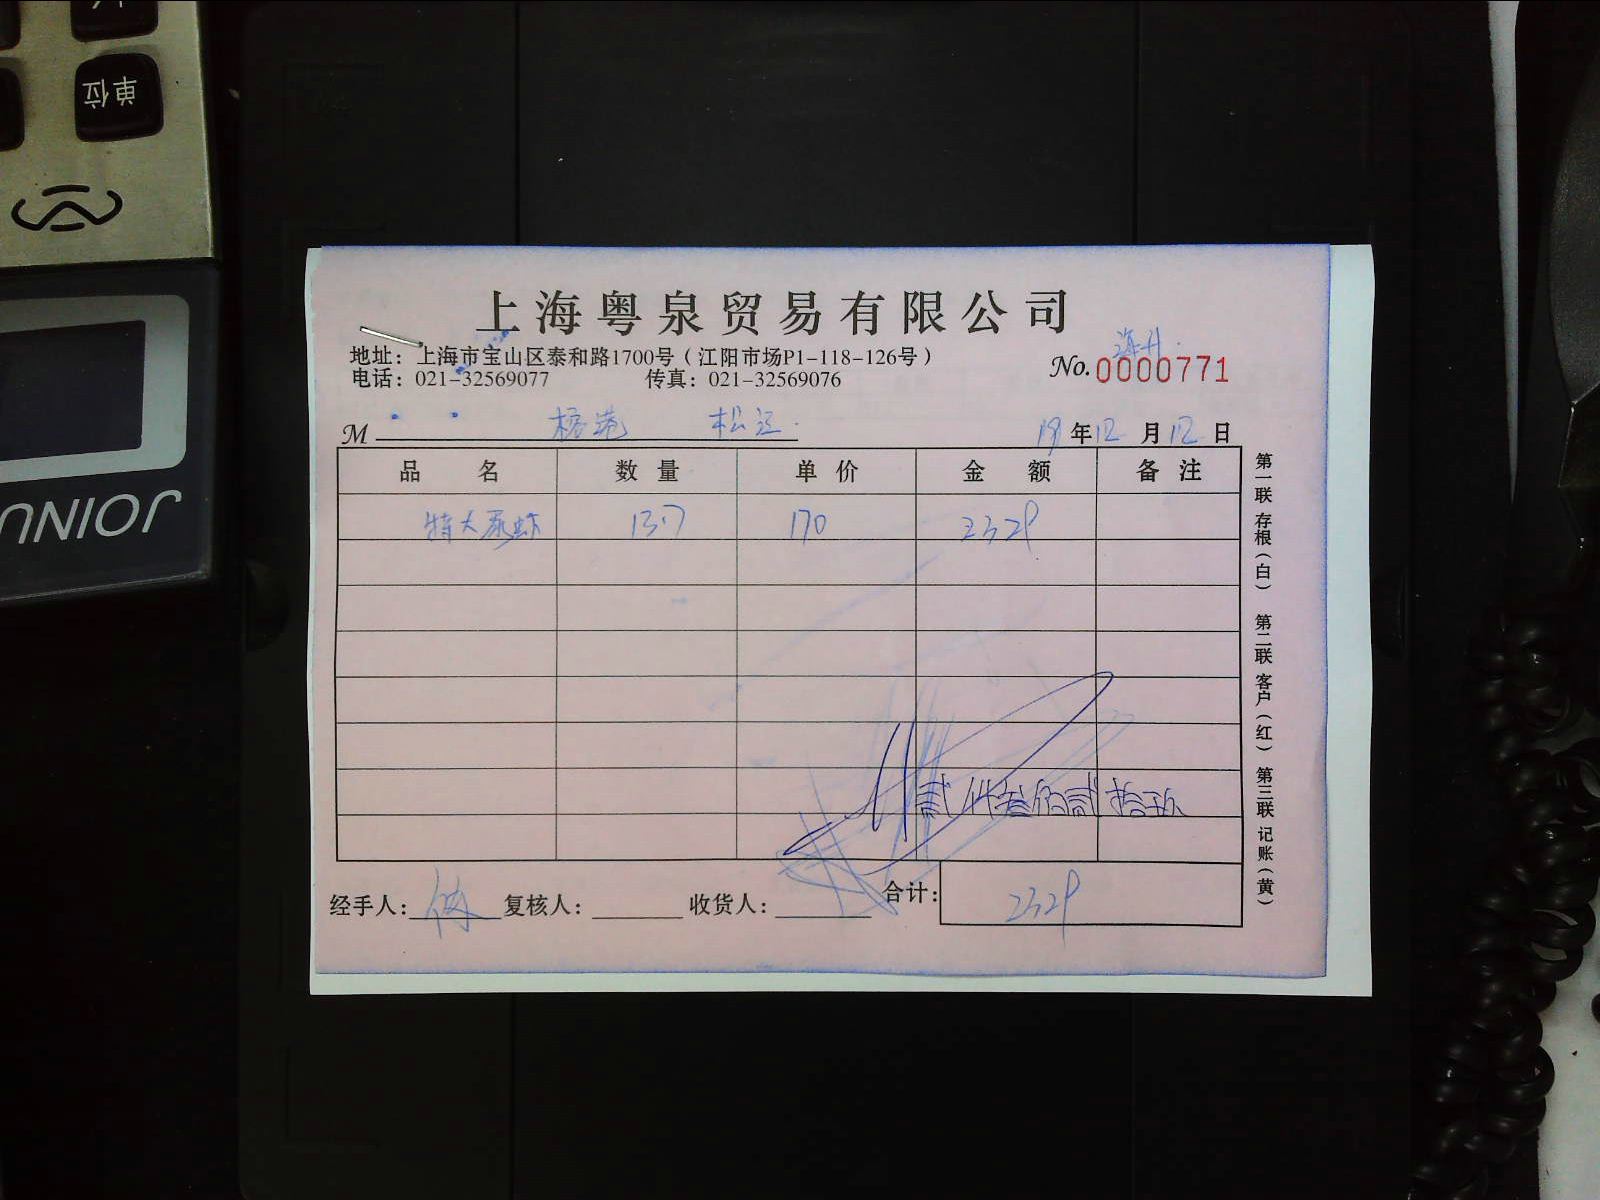 单位
JOINU
上海粤泉贸易有限公司
地址：上海市宝山区泰和路1700号（江阳市场P1-118-126号）
电话：021-32569077 传真：021-32569076
No.0000771
M 松江 19年12月12日
品名 数量 单价 金额 备注
特大尿虾 13.7 170 2329
贰仟叁佰贰拾玖
经手人： 复核人： 收货人： 合计：2329
第一联 存根（白） 第二联 客户（红） 第三联 记账（黄）